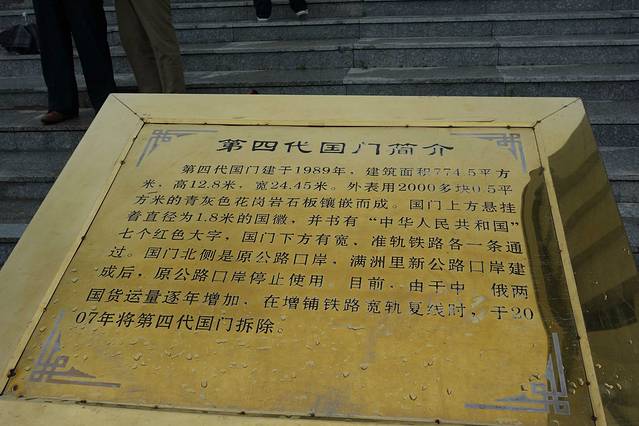 第四代国门简介
第四代国门建于1989年，建筑面积774.5平方
米，高12.8米，宽24.45米。外表用2000多块0.5平
方米的青灰色花岗岩石板镶嵌而成。国门上方悬挂
着直径为1.8米的国徽，并书有“中华人民共和国”
七个红色大字，国门下方有宽、准轨铁路各一条通
过。国门北侧是原公路口岸，满洲里新公路口岸建
成后，原公路口岸停止使用 目前，由于中 俄两
国货运量逐年增加，在增铺铁路宽轨复线时，于20
07年将第四代国门拆除。